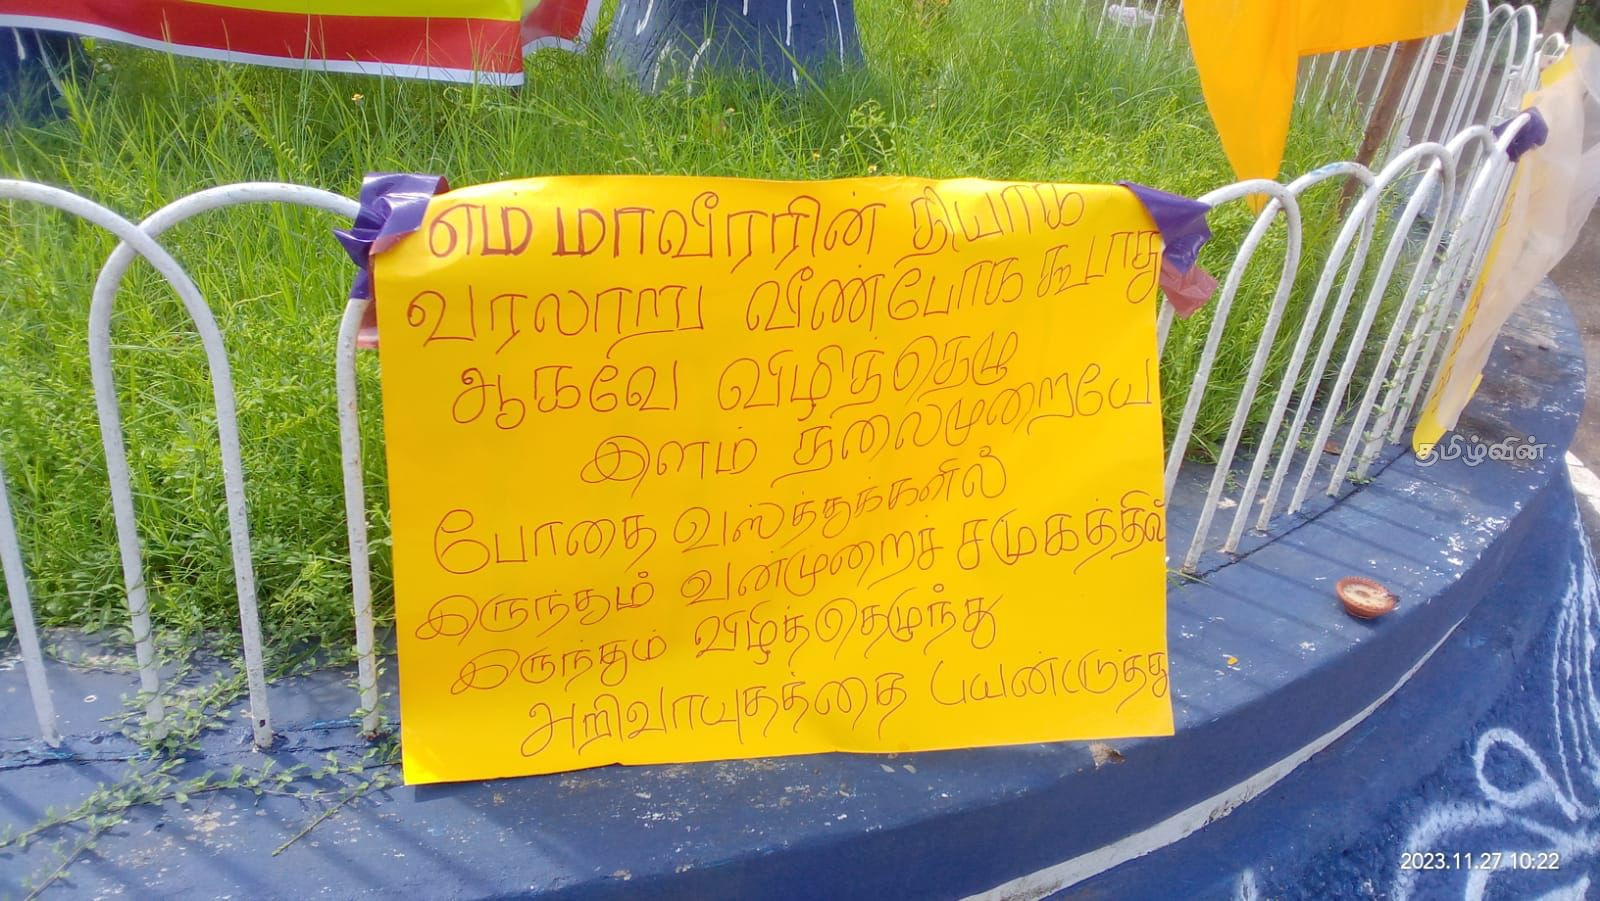 எம் மாவீரரின் தியாக
வரலாறு வீண்போக கூடாது
ஆகவே விழித்தெழு
இளம் தலைமுறையே
போதை வஸ்த்துக்களில்
இருந்தும் வன்முறைச் சமுகத்தில்
இருந்தும் விழித்தெழுந்து
அறிவாயுதத்தை பயன்படுத்து
தமிழ்வின்
2023.11.27 10:22